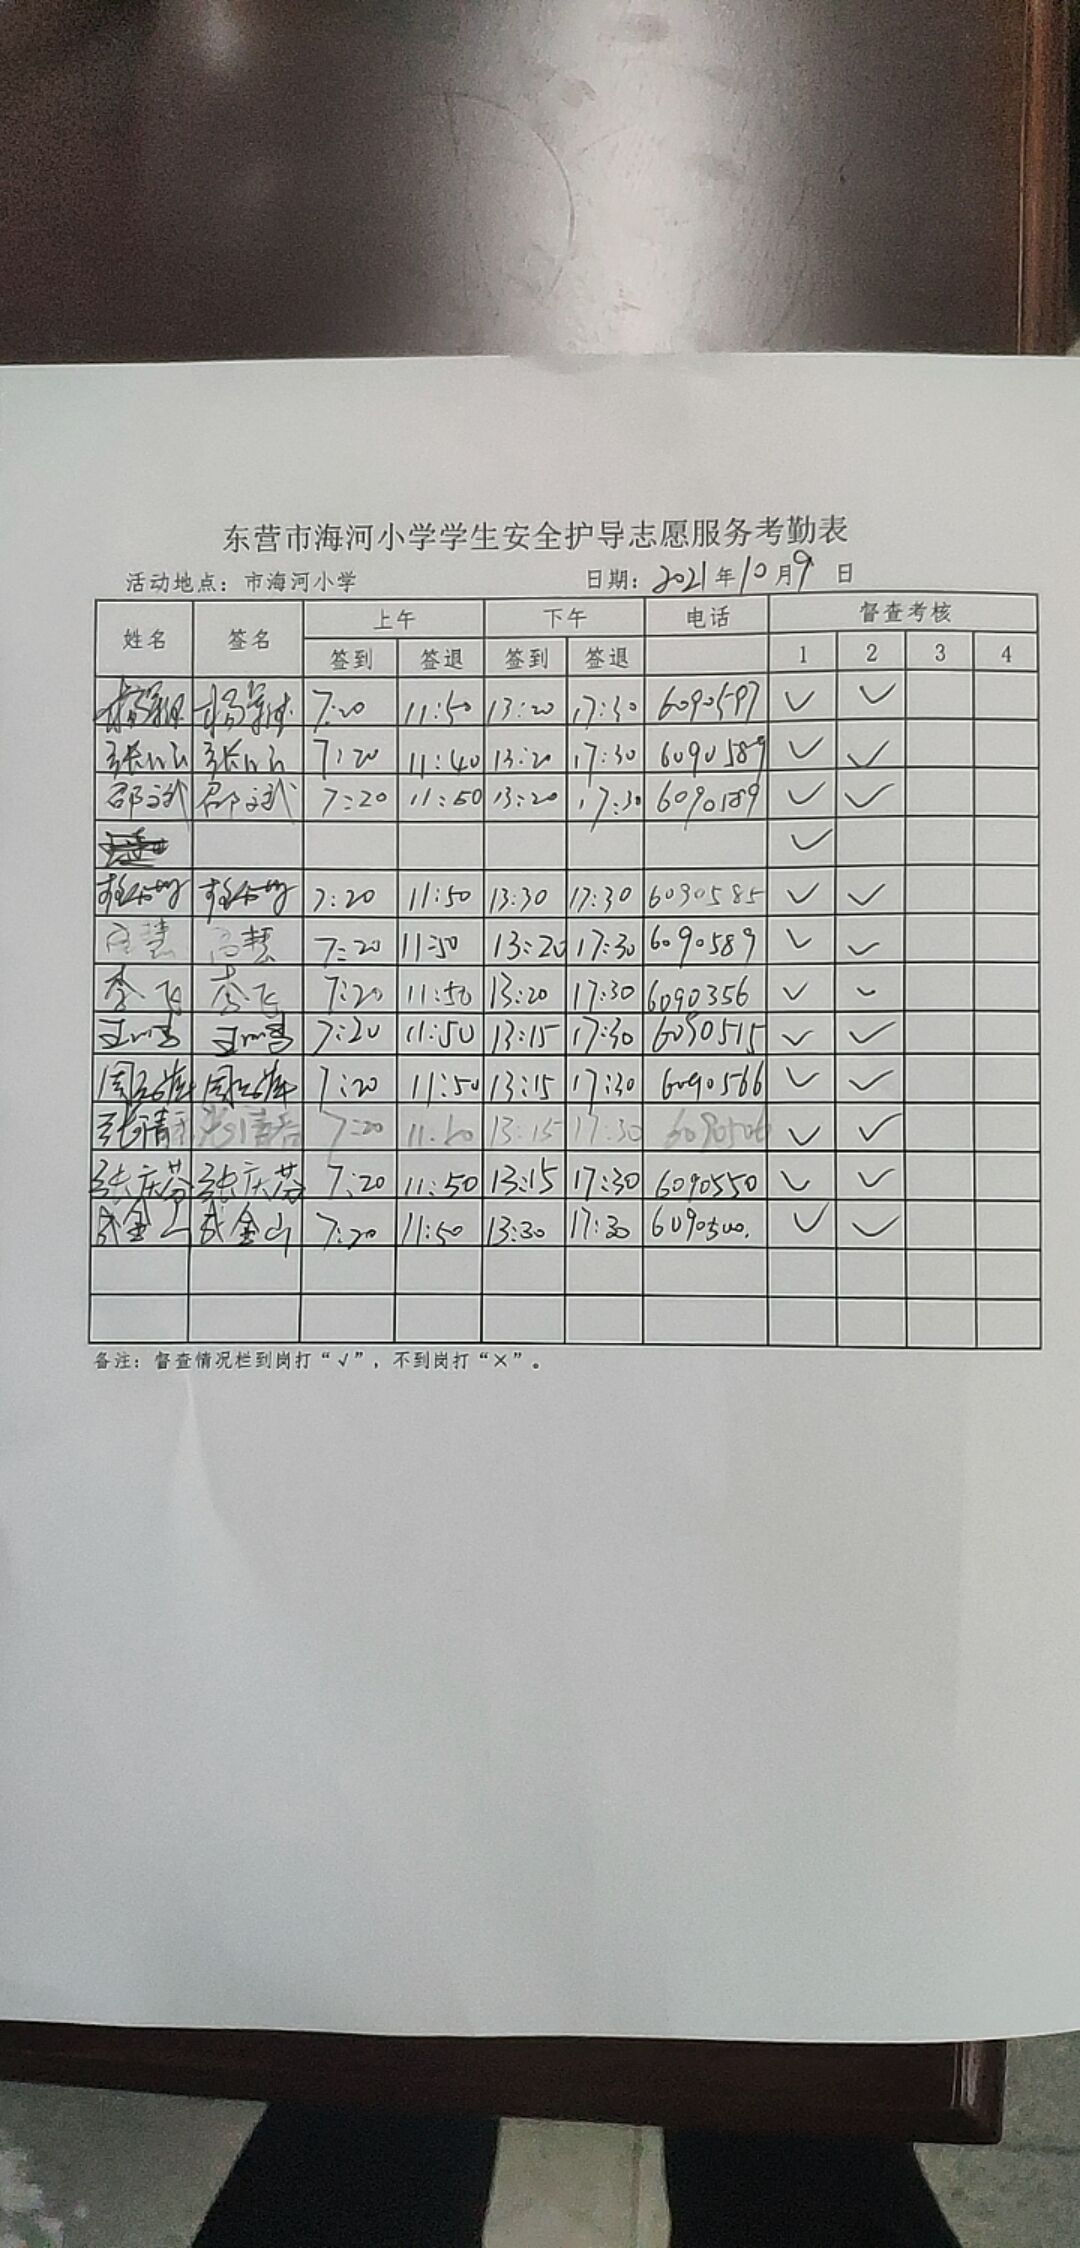 东营市海河小学学生安全护导志愿服务考勤表
活动地点：市海河小学 日期：2021年10月9日
姓名 签名 上午 下午 电话 督查考核
签到 签退 签到 签退 1 2 3 4
7:20 11:50 13:20 17:30 6090597 ✓ ✓
7:20 11:40 13:20 17:30 6090589 ✓ ✓
邵文武 邵文武 7:20 11:50 13:20 17:30 6090189 ✓ ✓
✓
7:20 11:50 13:30 17:30 6090585 ✓ ✓
高慧 高慧 7:20 11:50 13:20 17:30 6090589 ✓ ✓
李飞 李飞 7:20 11:50 13:20 17:30 6090356 ✓ ✓
7:20 11:50 13:15 17:30 6090515 ✓ ✓
7:20 11:50 13:15 17:30 6090566 ✓ ✓
7:20 11:50 13:15 17:30 ✓ ✓
张庆芬 张庆芬 7:20 11:50 13:15 17:30 6090550 ✓ ✓
7:20 11:50 13:30 17:30 6090500. ✓ ✓
备注：督查情况栏到岗打“√”，不到岗打“×”。